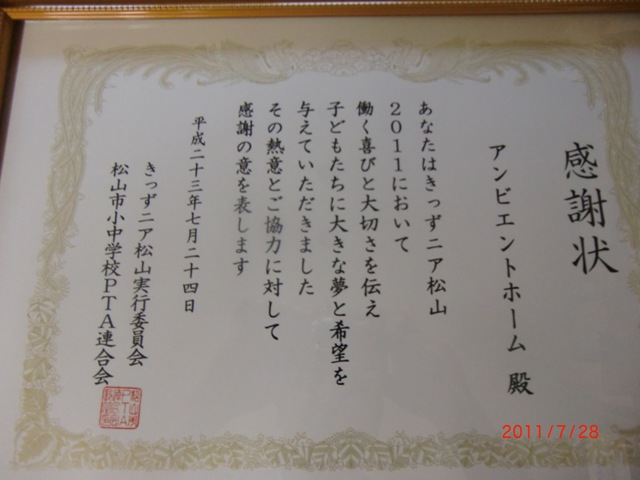 感謝状
アンビエントホーム 殿
あなたはきっずニア松山
2011において
働く喜びと大切さを伝え
子どもたちに大きな夢と希望を
与えていただきました
その熱意とご協力に対して
感謝の意を表します
平成二十三年七月二十四日
きっずニア松山実行委員会
松山市小中学校PTA連合会
2011/7/28